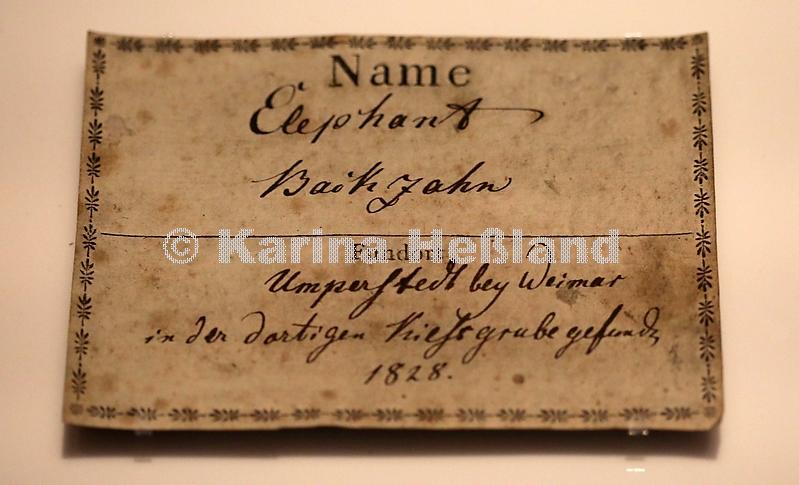 Name
Elephant
Backzahn
© Karina Heßland
Fundort
Umperstedt bey Weimar
in der dortigen Kiessgrube gefund
1828.